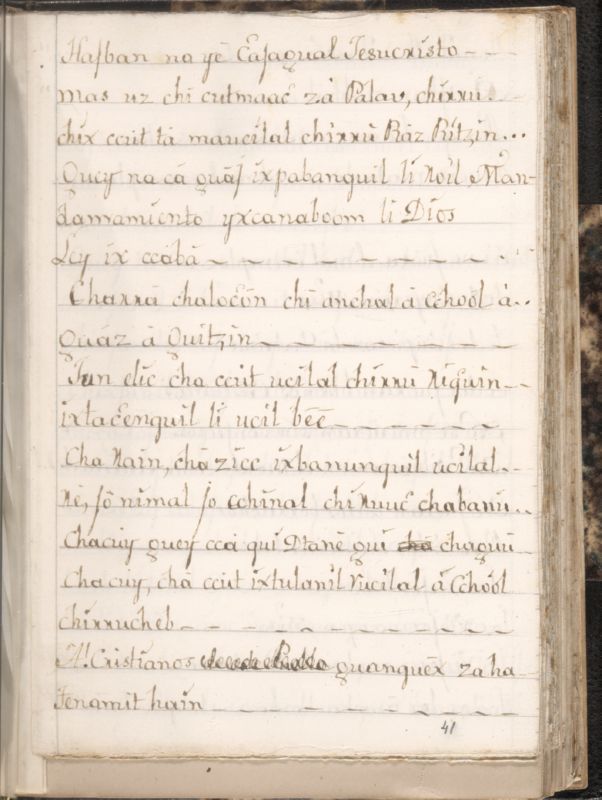 Hasban na yè Casagual Jesucristo
mas uz chi cutmaac̃ zà Palau, chixxu.
chix ccut tà maucilal chixxù Ràz Rìtzin...
Quey na cà guàs ixpabanquil li Noil Man-
damamiento yxcanaboom li Dios
Ley ix ccàbà
Chaxxà chalocc̃ön chi anchal à Cchool à..
guàz à Guitzin
Jun elìc cha ccut ucilal chixxù Niguin
ixtac̃enquil li ucil bëë
Cha Nain, chà zìcc ixbanunquil ucilal.
Nè, sö nimal so cchinal chi Nuuc̃ chabanu..
Chacuy guey ccà quì Dtanë guì chaguü
Cha cuy, chà ccut ixtulanil rucilal à Cchööl
chixxucheb
A! Cristianos guanquëx za ha
tenamit hain
41